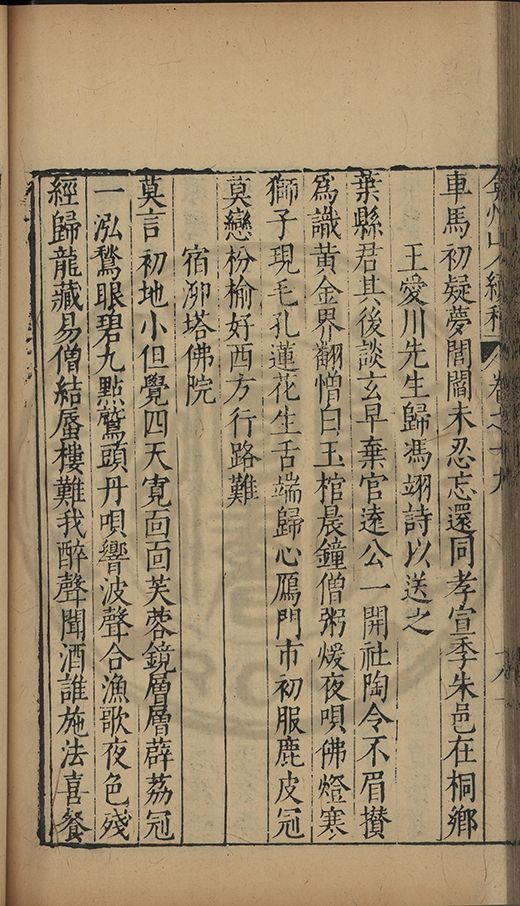 弇州山人續稿 卷之十九
車馬初疑夢閭閻未忍忘還同孝宣季朱邑在桐鄉
王愛川先生歸馮翊詩以送之
葉縣君其後談玄早棄官遠公一開社陶令不眉攢
為識黃金界翻憎白玉棺晨鐘僧粥煖夜唄佛燈寒
獅子現毛孔蓮花生舌端歸心鴈門市初服鹿皮冠
莫戀枌榆好西方行路難
宿泖塔佛院
莫言初地小但覺四天寬面面芙蓉鏡層層薜荔冠
一泓鶖眼碧九點鷲頭丹唄響波聲合漁歌夜色殘
經歸龍藏易僧結蜃樓難我醉聲聞酒誰施法喜餐